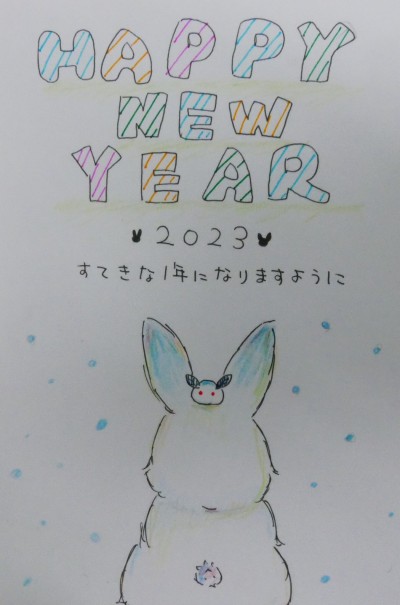 HAPPY
NEW
YEAR
2023
すてきな1年になりますように